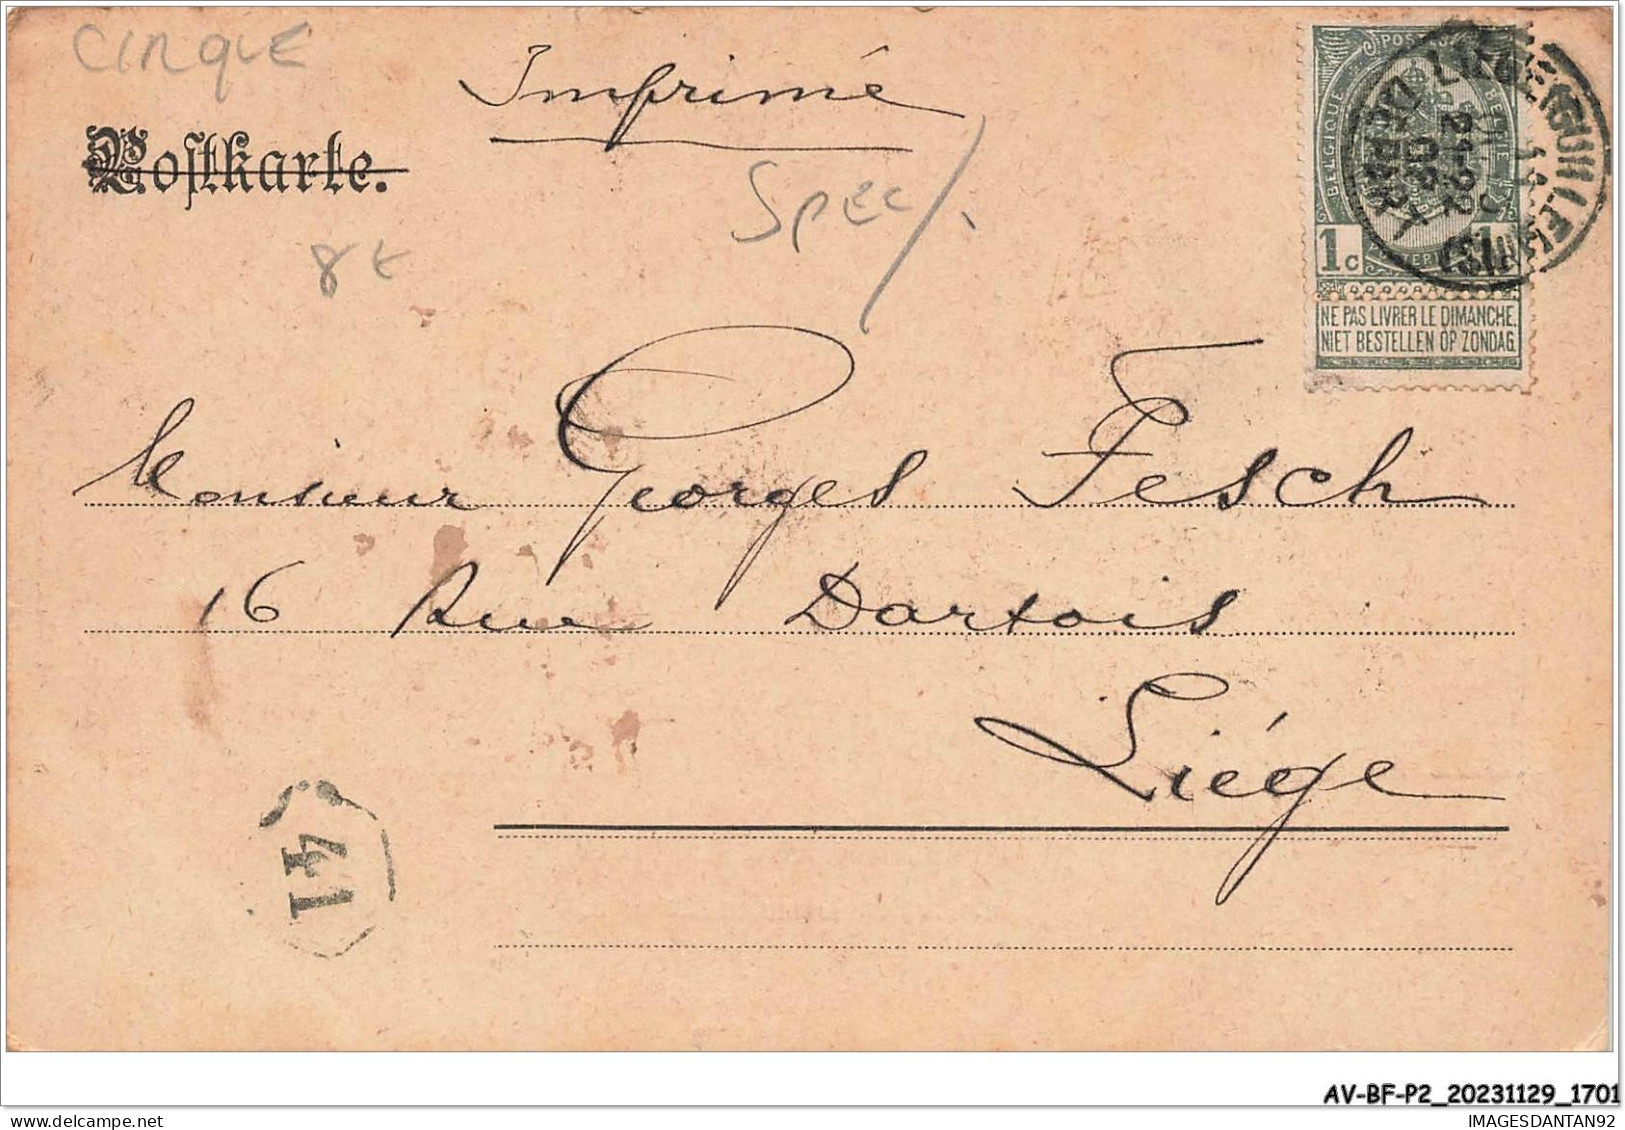 CIRQUE
Imprimé
Postkarte.
SPEC/.
8€
POSTES
BELGIQUE BELGIE
1c 1c
NE PAS LIVRER LE DIMANCHE.
NIET BESTELLEN OP ZONDAG.
Monsieur Georges Fesch
16 Rue Dartois
Liége
41
AV-BF-P2_20231129_1701
IMAGESDANTAN92